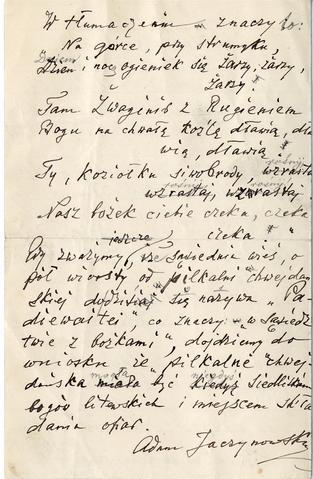 W tłumaczeniu znaczy to:
Na górce, przy strumyku,
Dzień i noc ogieniek się żarzy, żarzy,
żarzy.
Tam Żwaginis z Rugieniem
Bogu na chwałę kozła dławią, dła
wią, dławią.
Ty, koziołku siwobrody, wzrastaj
rośnij
wzrastaj, wzrastaj
rośnij rośnij
Nasz bożek ciebie czeka, czeka
czeka
jeszcze
Gdy zważymy, że sąsiednia wieś, o
pół wiorsty od "pilkalni" chwejdań
skiej się nazywa "Pa
diewaitei", co znaczy "w sąsiedz
twie z bożkami", dojdziemy do
wniosku że "pilkalnė" chwej-
dańska miała być kiedyś siedliskiem
mogła niegdyś
bogów litewskich i miejscem skła
dania ofiar.
Adam Jaczynowski